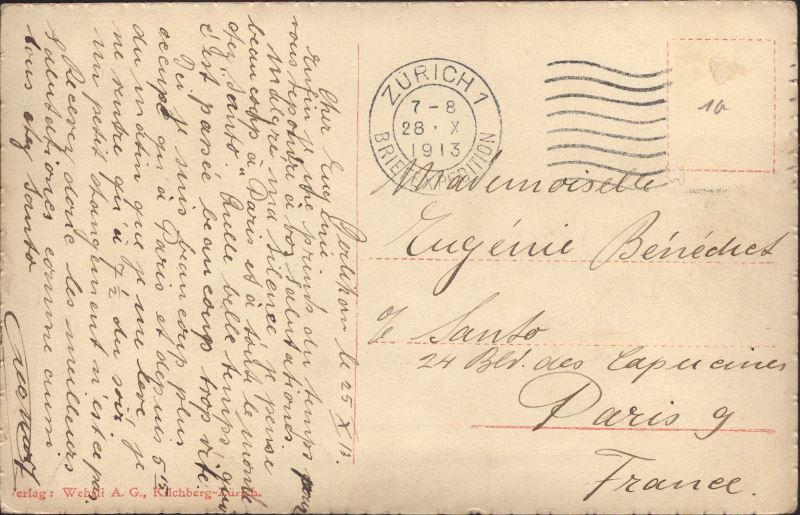 Oerlikon le 25 X 13.
Cher Eugénie
Enfin je me prends du temps pour
vous répondre à vos salutations.
Malgré ma silence je pense
beaucoup à Paris et à tout le monde
chez "Santo". Quelle belle temps qui
s'est passée beaucoup trop vite.
Ici je suis beaucoup plus
occupé qu'à Paris et depuis 5¹⁵
du matin que je me lève, je
ne rentre qu'à 7½ du soir.
Un petit changement n'est-ce pas.
Recevez donc les meilleurs
salutationes comme aussi
tous chez Santo
ZÜRICH 1
7-8
28. X
1913
BRIEFEXPEDITION
10
Mademoiselle
Eugénie Bénédict
c/o Santo
24 Bld. des Capucines
Paris 9
France.
Verlag: Wehrli A. G., Kilchberg-Zürich.